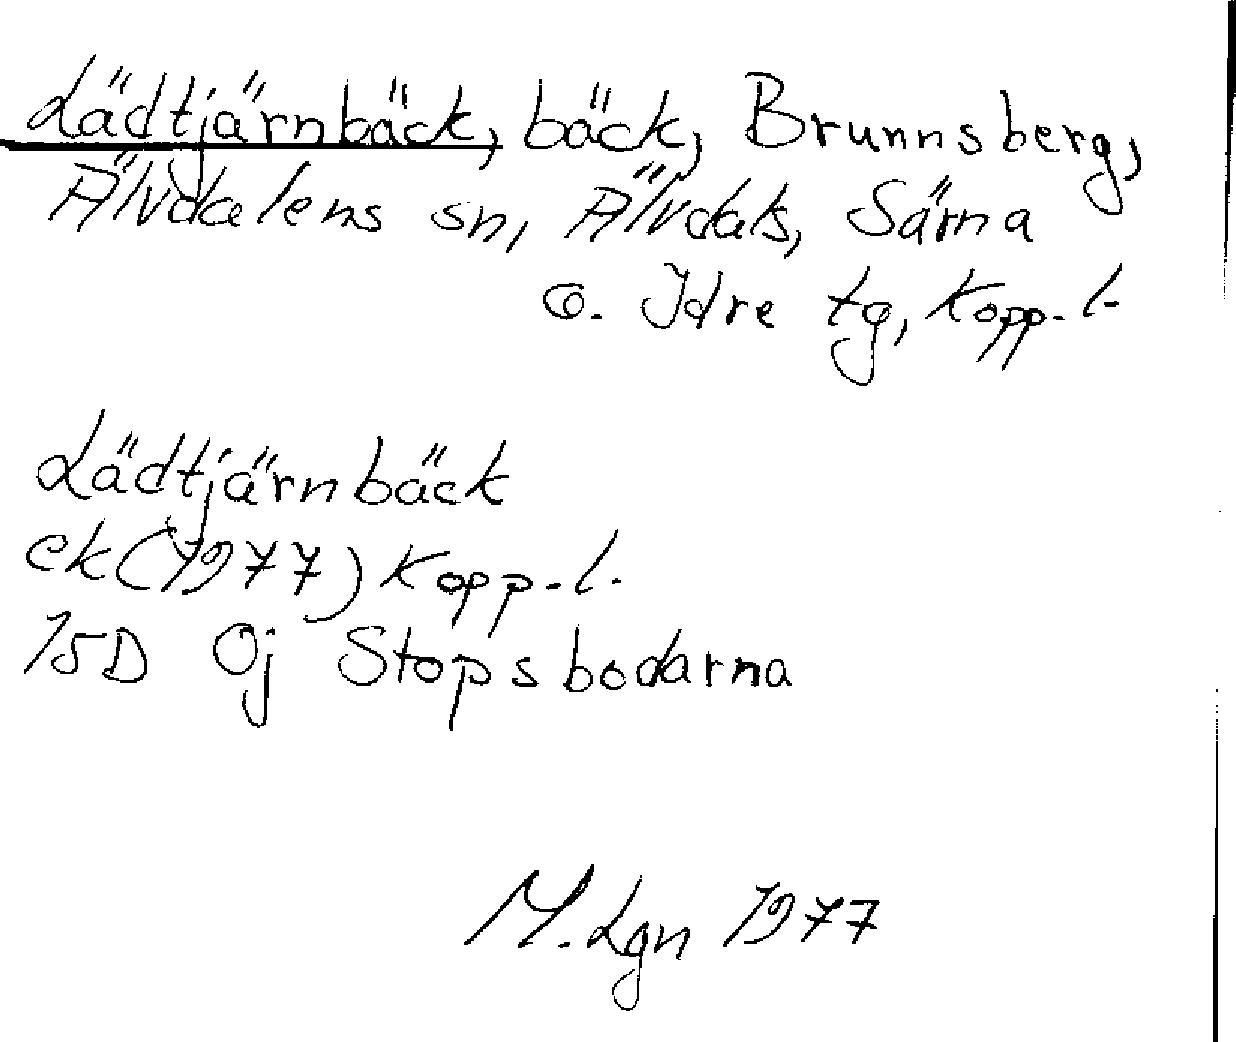 Lädtjärnbäck, bäck, Brunnsberg,
Älvdalens sn, Älvdals, Särna
o. Idre tg, Kopp. l.
Lädtjärnbäck
ek (1977) Kopp. l.
15D 0j Stopsbodarna
M. Lgn 1977